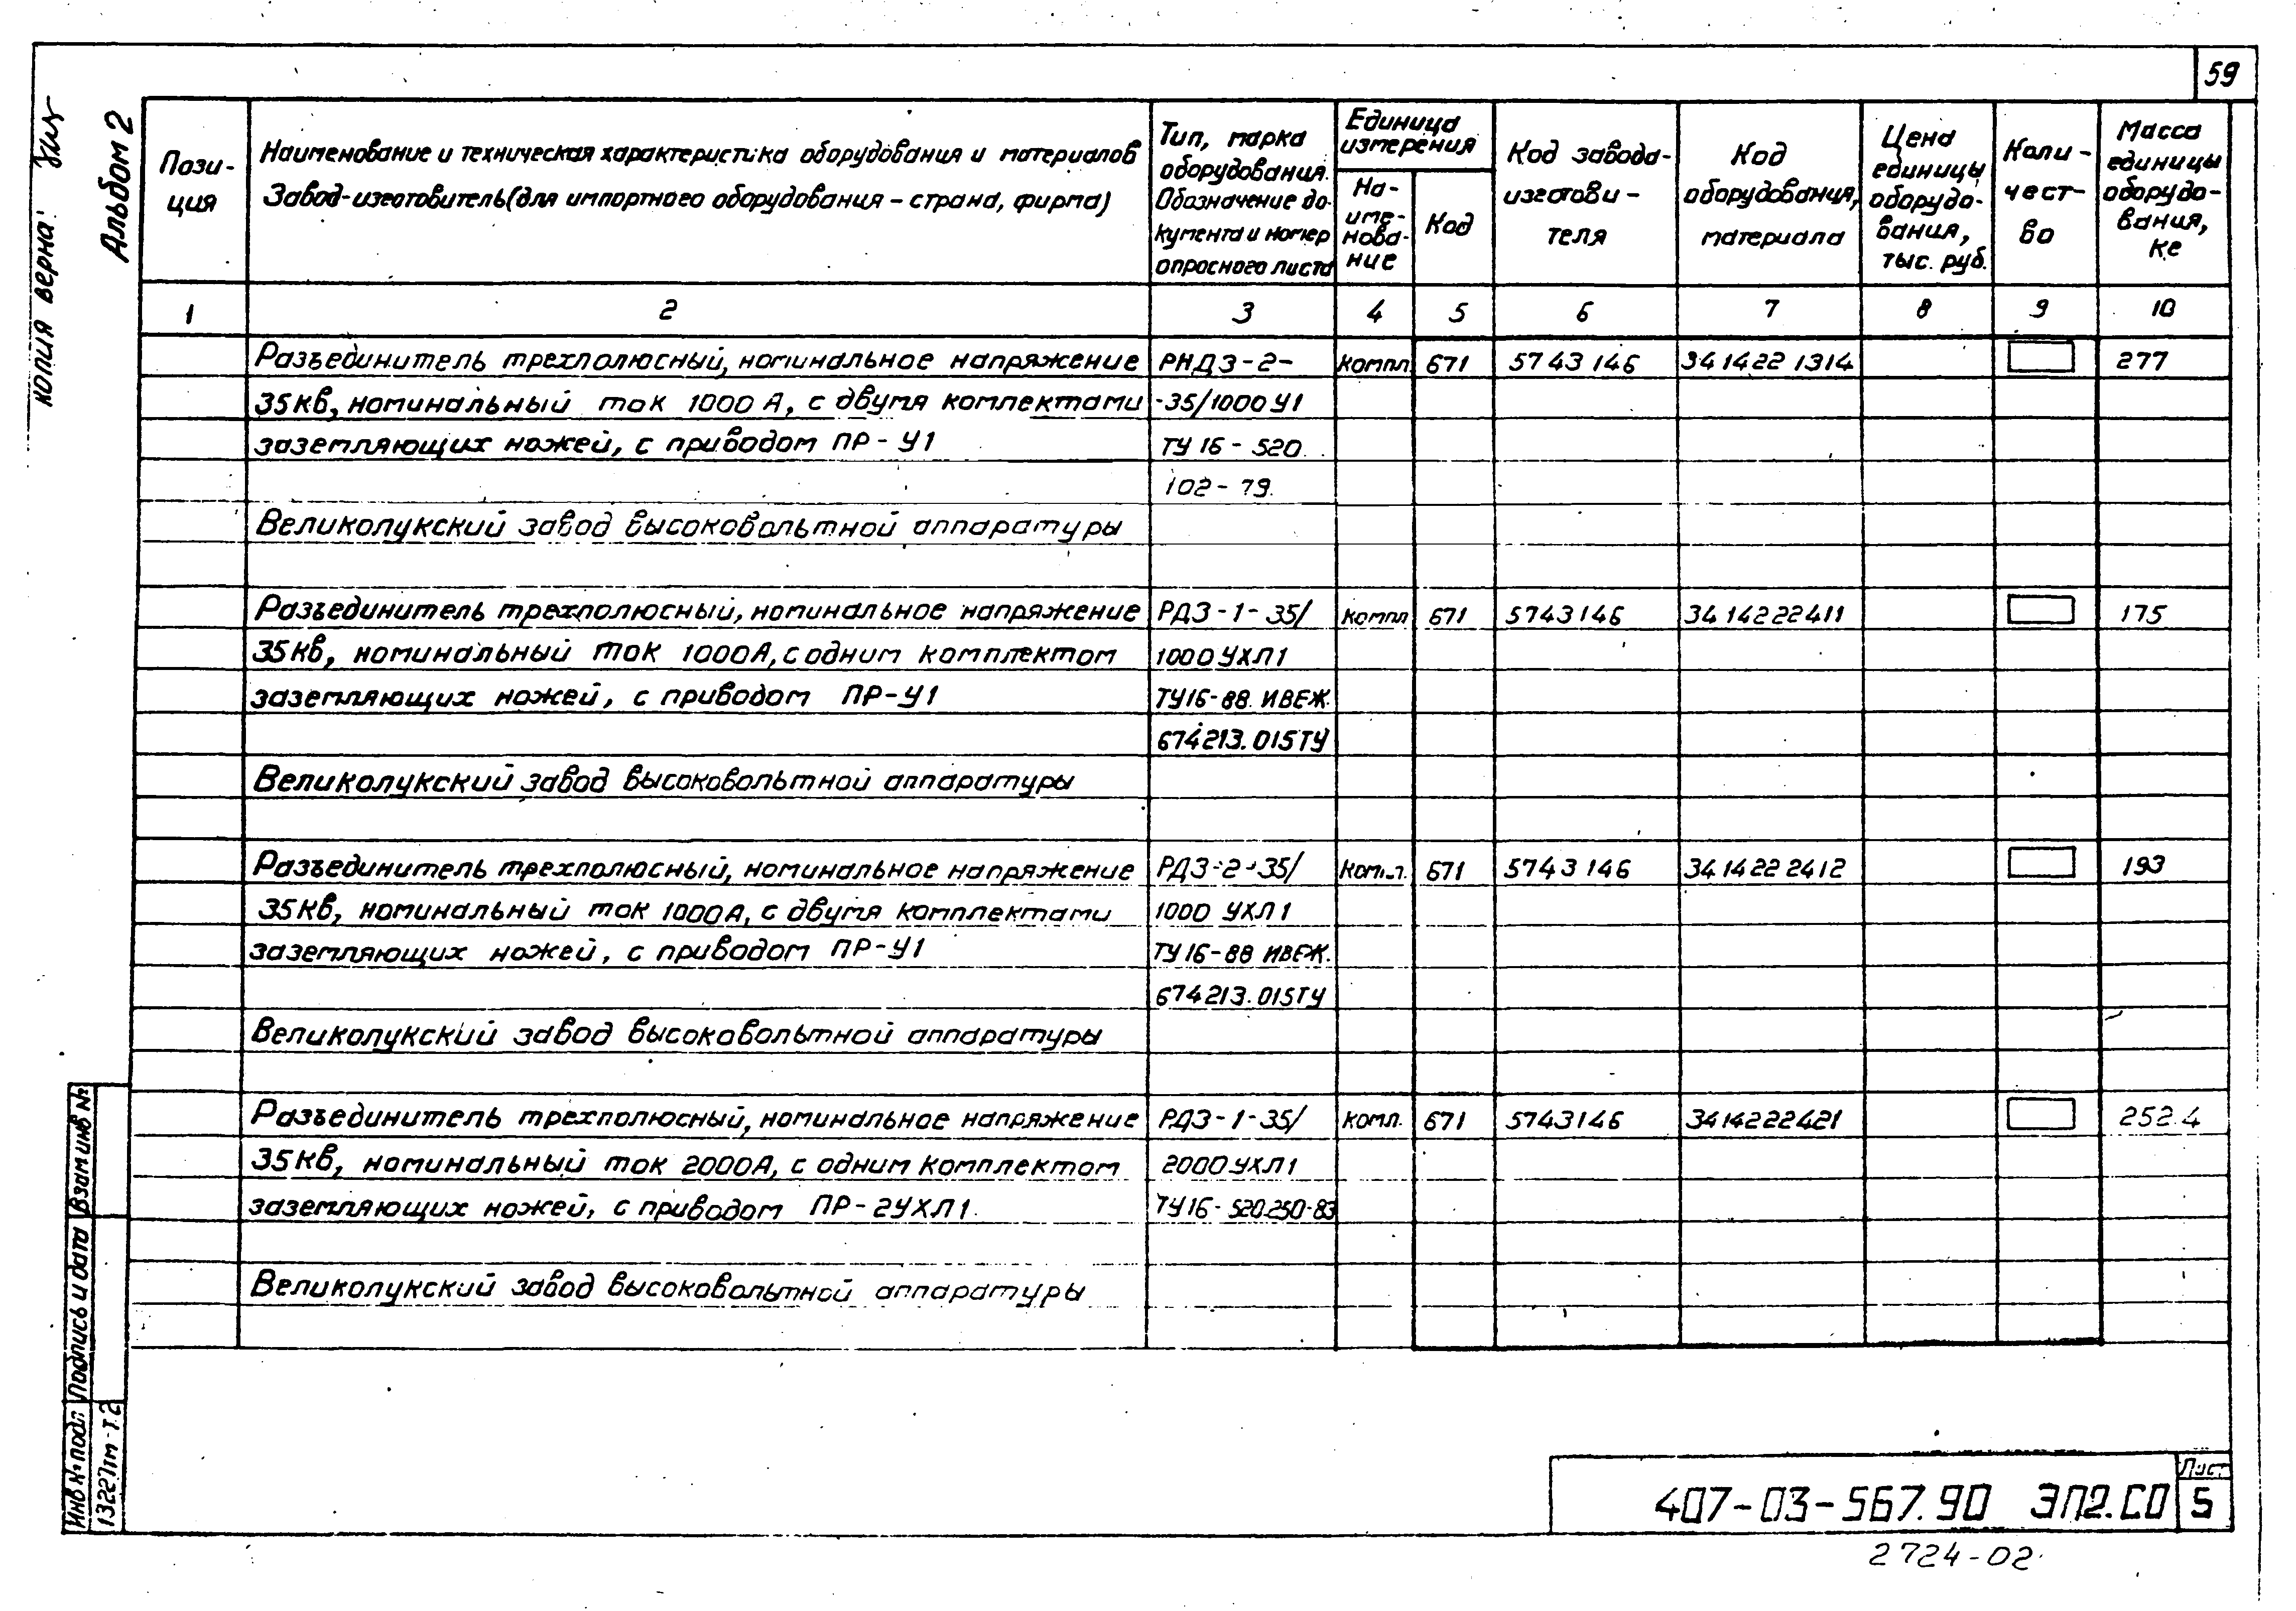 59
Копия верна:
Альбом 2
Пози-
ция
Наименование и техническая характеристика оборудования и материалов
Завод-изготовитель (для импортного оборудования – страна, фирма)
Тип, марка
оборудования.
Обозначение до-
кумента и номер
опросного листа
Единица
измерения
На-
име-
нова-
ние
Код
Код завода-
изготови-
теля
Код
оборудования,
материала
Цена
единицы
оборудо-
вания,
тыс. руб.
Коли-
чест-
во
Масса
единицы
оборудо-
вания,
кг
1 2 3 4 5 6 7 8 9 10
Разъединитель трехполюсный, номинальное напряжение РНДЗ-2- Компл 671 5743146 3414221314 277
35кв, номинальный ток 1000 А, с двумя комплектами -35/1000 У1
заземляющих ножей, с приводом ПР-У1 ТУ 16-520.
102-79.
Великолукский завод высоковольтной аппаратуры
Разъединитель трехполюсный, номинальное напряжение РДЗ-1-35/ Компл 671 5743146 3414222411 175
35кв, номинальный ток 1000А, с одним комплектом 1000 УХЛ1
заземляющих ножей, с приводом ПР-У1 ТУ16-88 ИВЕЖ.
674213.015ТУ
Великолукский завод высоковольтной аппаратуры
Разъединитель трехполюсный, номинальное напряжение РДЗ-2-35/ Компл. 671 5743146 3414222412 193
35кв, номинальный ток 1000А, с двумя комплектами 1000 УХЛ1
заземляющих ножей, с приводом ПР-У1 ТУ16-88 ИВЕЖ.
674213.015ТУ
Великолукский завод высоковольтной аппаратуры
Разъединитель трехполюсный, номинальное напряжение РДЗ-1-35/ Комп. 671 5743146 3414222421 252.4
35кв, номинальный ток 2000А, с одним комплектом 2000УХЛ1
заземляющих ножей, с приводом ПР-2УХЛ1. ТУ16-520.250-83
Великолукский завод высоковольтной аппаратуры
Взам инв №
Подпись и дата
Инв № подл
13227тм-т.2
407-03-567.90 ЭП2.СО
Лист
5
2724-02